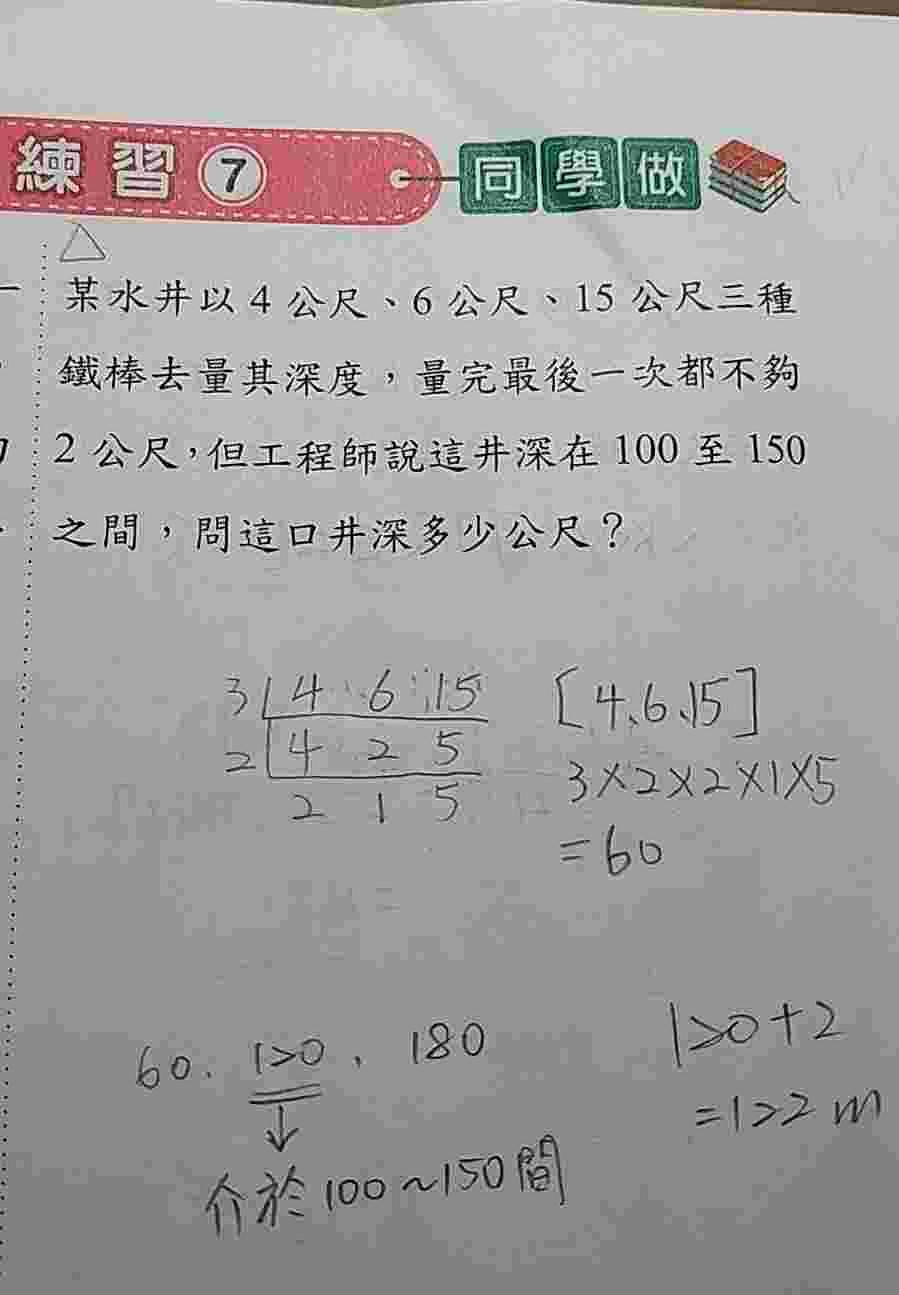 練習 7 同學做
某水井以 4 公尺、6 公尺、15 公尺三種
鐵棒去量其深度，量完最後一次都不夠
2 公尺，但工程師說這井深在 100 至 150
之間，問這口井深多少公尺？
3 4 6 15
2 4 2 5
2 1 5
[4、6、15]
3×2×2×1×5
=60
60、120、180
↓
介於100~150間
120+2
=122 m